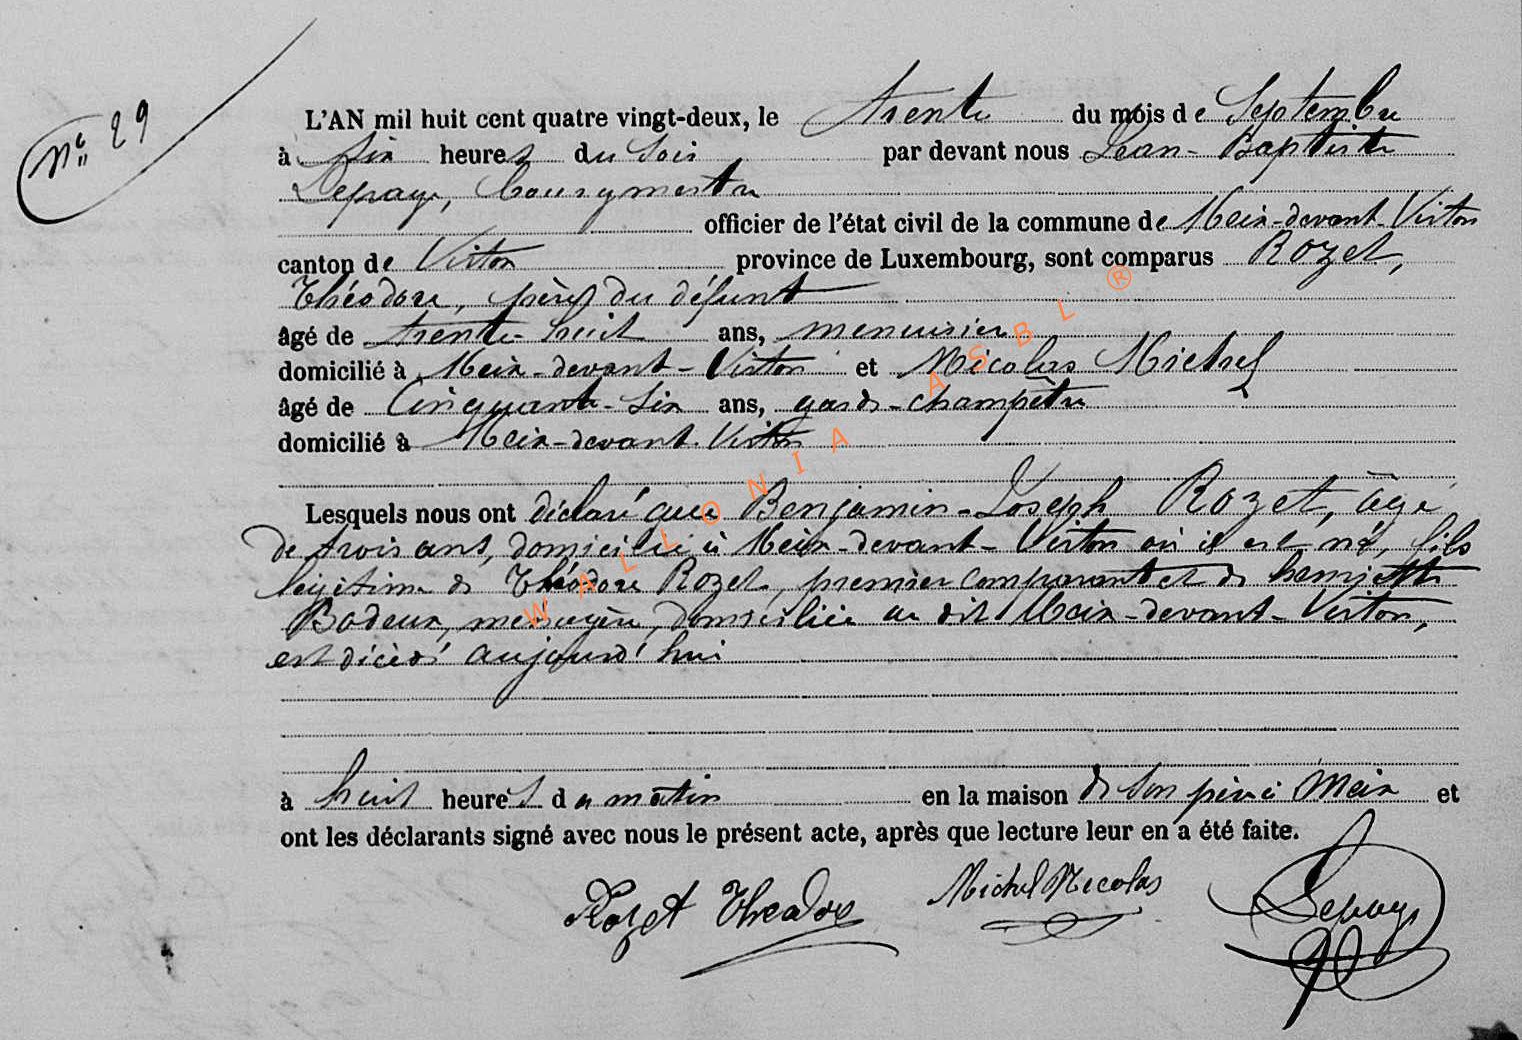 N° 29
L'AN mil huit cent quatre vingt-deux, le trente du mois de Septembre
à six heures du soir par devant nous Jean-Baptiste
Lepage, bourgmestre
officier de l'état civil de la commune de Meix-devant-Virton
canton de Virton province de Luxembourg, sont comparus Rozet,
Théodore, père du défunt
âgé de trente-huit ans, menuisier
domicilié à Meix-devant-Virton et Nicolas Michel
âgé de Cinquante-six ans, garde-champêtre
domicilié à Meix-devant-Virton
Lesquels nous ont déclaré que Benjamin-Joseph Rozet, âgé
de trois ans, domicilié à Meix-devant-Virton où il est né, fils
légitime de Théodore Rozet, premier comparant et de henriette
Bodeux, ménagère, domiciliée au dit Meix-devant-Virton,
est décédé aujourd'hui
à huit heures du matin en la maison de son père à Meix et
ont les déclarants signé avec nous le présent acte, après que lecture leur en a été faite.
Rozet Theodore Michel Nicolas Lepage
WALLONIA ASBL ®